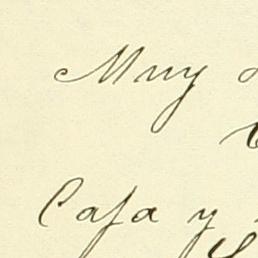 Muy
Casa y